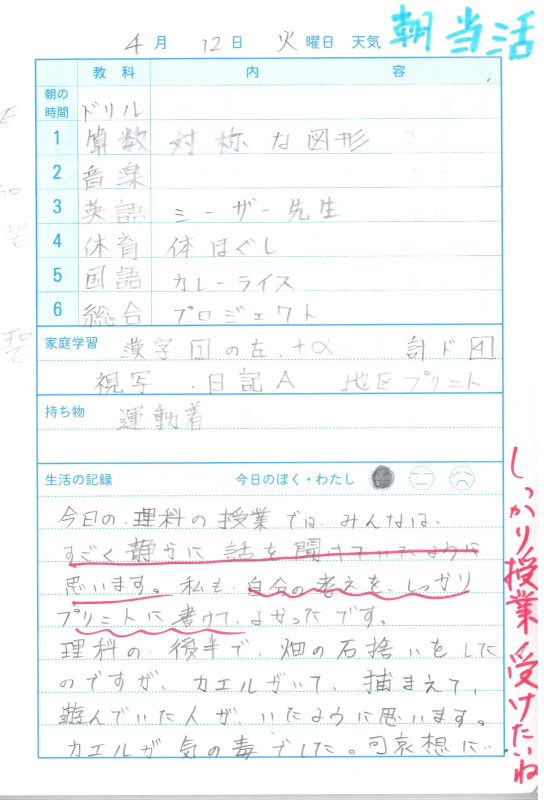 朝当活
4月 12日 火曜日 天気
教科 内容
朝の時間 ドリル
1 算数 対称な図形
2 音楽
3 英語 ミーザー先生
4 体育 体ほぐし
5 国語 カレーライス
6 総合 プロジェクト
家庭学習 漢字 回の左、+α 計ド 4
視写・日記A 地区プリント
持ち物 運動着
生活の記録 今日のぼく・わたし
今日の理科の授業では、みんなは、
すごく静かに話を聞きていたように
思います。私も、自分の考えを、しっかり
プリントに書けて、よかったです。
理科の後半で、畑の石捨いをした
のですが、カエルがいて、捕まえて、
遊んでいた人が、いたように思います。
カエルが気の毒でした。可哀想に…
しっかり授業受けたいね